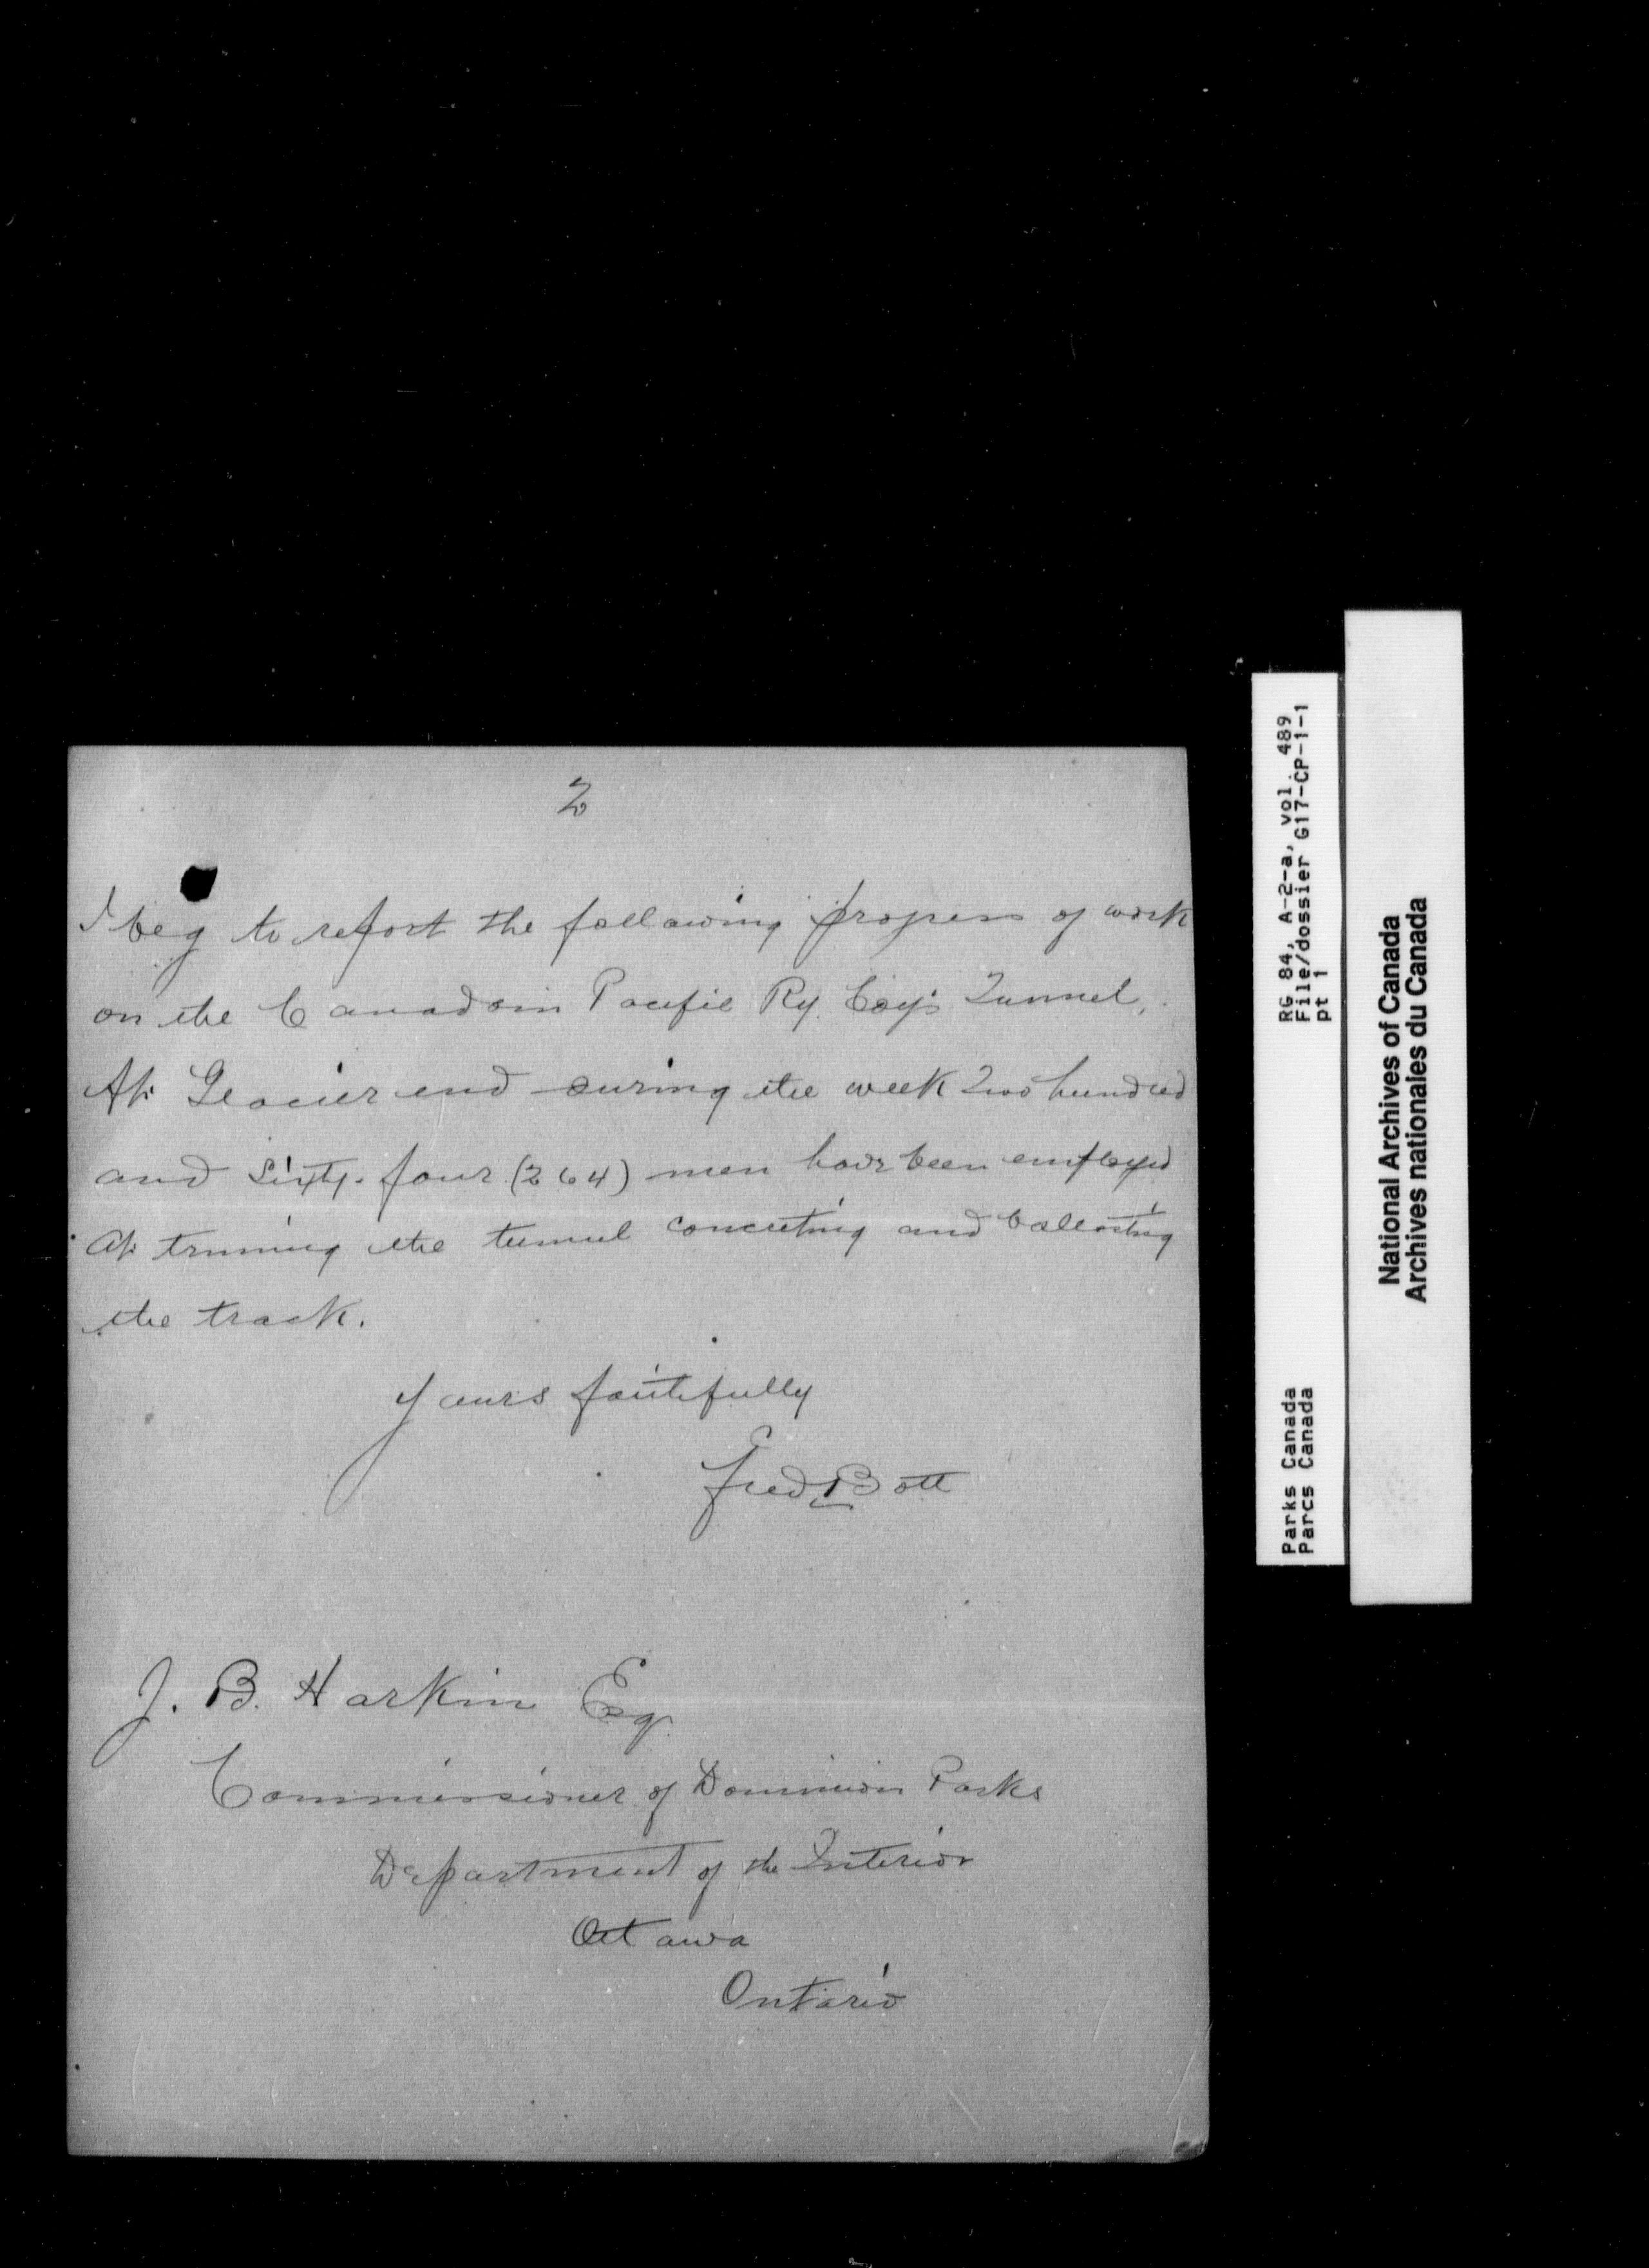 2
I beg to report the following progress of work
on the Canadain Pacific Ry. Coy's Tunnel.
At Glacier end during the week Two hundred
and Sixty-four (264) men have been employed
At triming the tunnel concreting and ballasting
the track.
Yours faithfully
Fred Bott
J. B. Harkin Esq.
Commissioner of Dominion Parks
Department of the Interior
Ottawa
Ontario
RG 84, A-2-a, vol. 489
File/dossier G17-CP-1-1
pt 1
Parks Canada
Parcs Canada
National Archives of Canada
Archives nationales du Canada